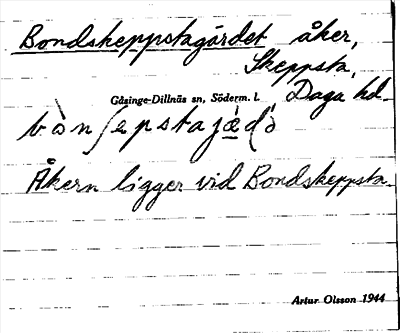 Bondskeppstagärdet åker,
Skeppsta,
Gåsinge-Dillnäs sn, Söderm. l. Daga hd.
bo̊̀nʃepstajæ̀ḍə
Åkern ligger vid Bondskeppsta.
Artur Olsson 1944